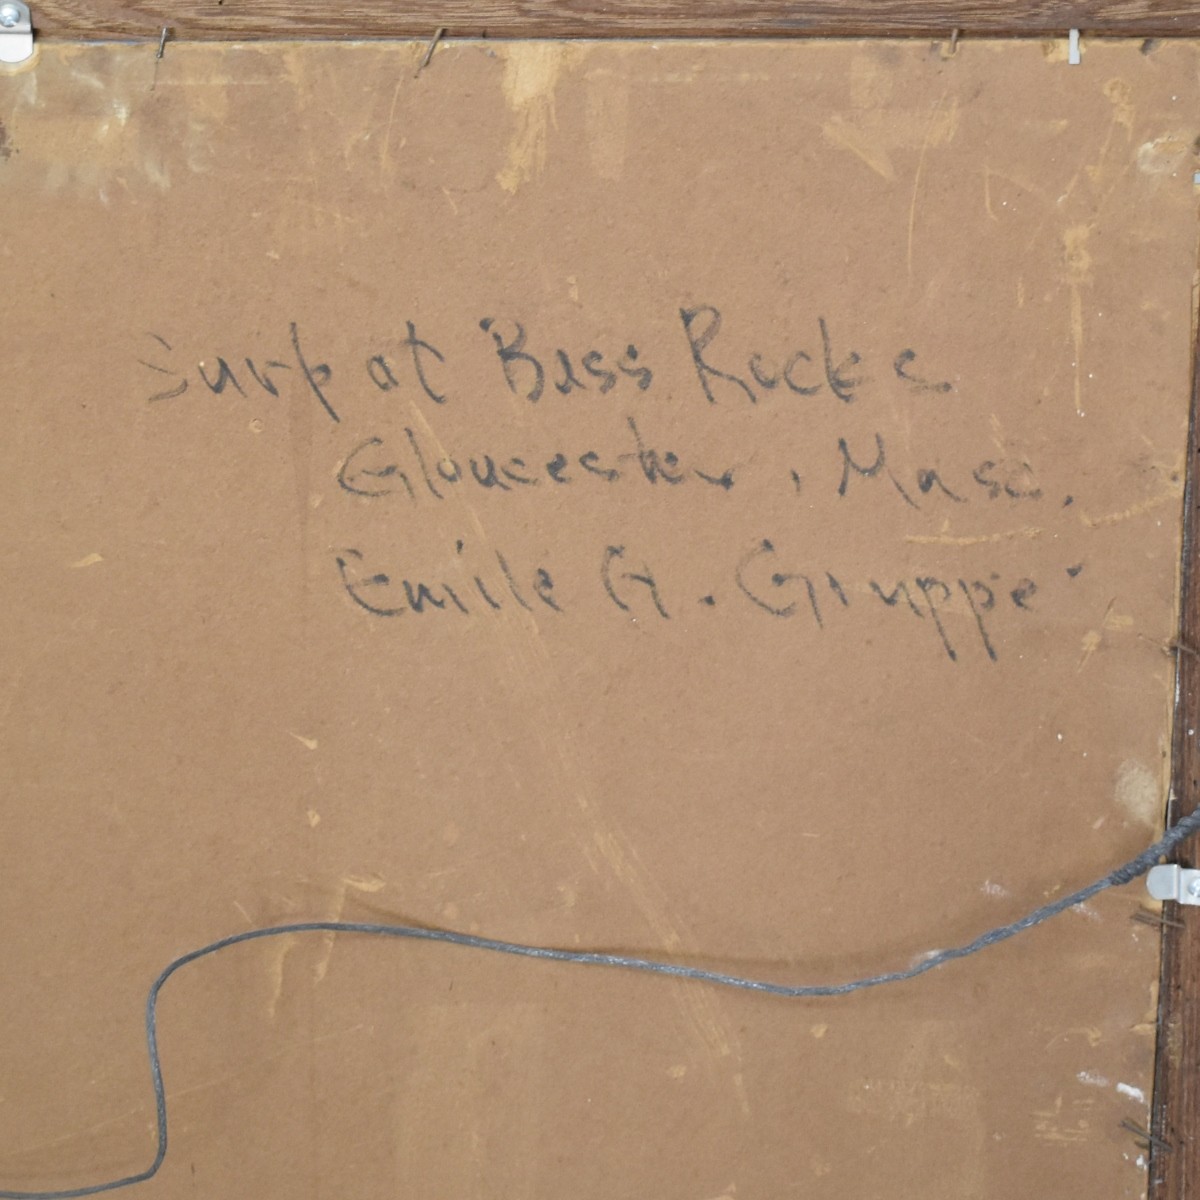 Surf at Bass Rocks
Gloucester, Mass.
Emile A. Gruppe